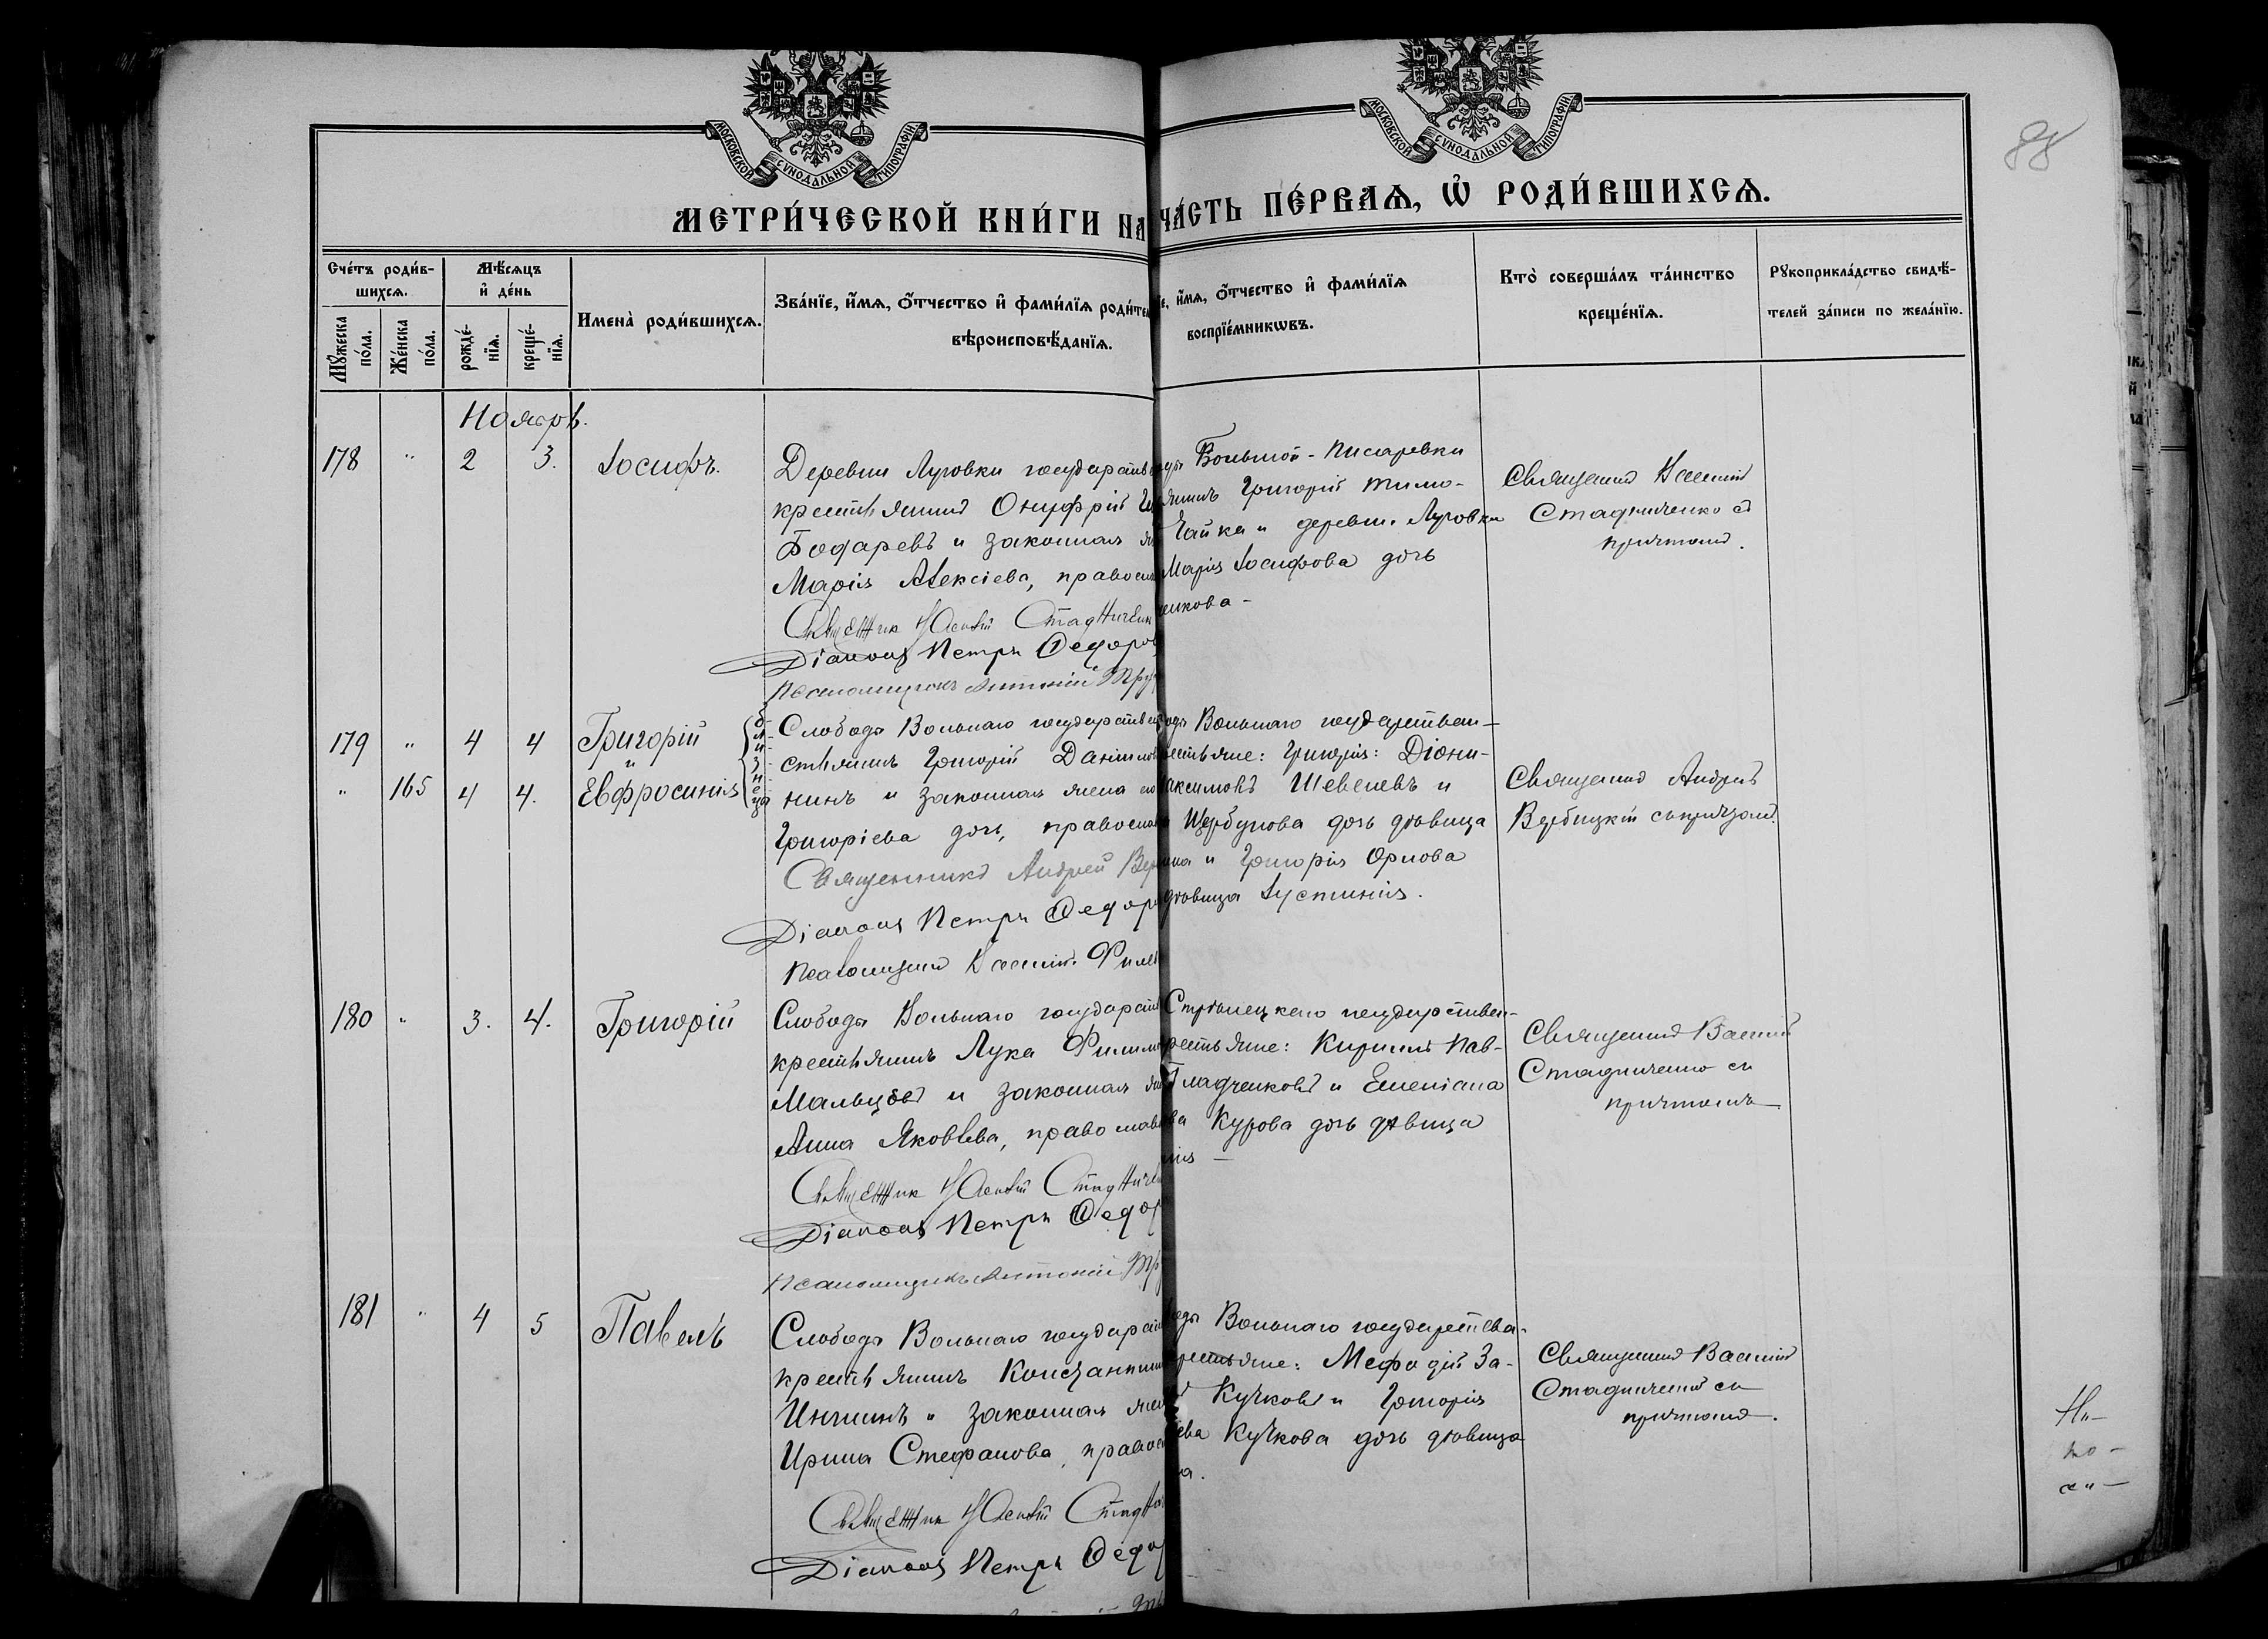 МОСКОВСКОЙ СѴНОДАЛЬНОЙ ТИПОГРАФІИ.
МОСКОВСКОЙ СѴНОДАЛЬНОЙ ТИПОГРАФІИ.
88
МЕТРИ́ЧЕСКОЙ КНИ́ГИ НА
ЧА́СТЬ ПЕ́РВАѦ, Ѡ҆ РОДИ́ВШИХСѦ.
Сче́тъ роди́в-
шихсѧ.
Мꙋ́жеска по́ла.
Же́нска по́ла.
Мѣ́сѧцъ
и҆ де́нь
рожде́-
нїѧ.
креще́-
нїѧ.
Имена̀ роди́вшихсѧ.
Зва́нїе, и҆́мѧ, ѻ҆́тчество и҆ фами́лїѧ роди́те
вѣроисповѣ́данїѧ.
е, и҆́мѧ, ѻ҆́тчество и҆ фами́лїѧ
воспрїе́мникѡвъ.
Кто̀ соверша́лъ та́инство
креще́нїѧ.
Рꙋкоприкла́дство свидѣ́-
телей за́писи по жела́нїю.
Ноябрь.
178 " 2 3. Іосифъ.
Деревни Луговки государств
крестьянинъ Онуфрій
Бочаревъ и законная
Марія Алексіева, правосл
Священник Василій Стадничен
Діаконъ Петръ Ѳедоров
Псаломщикъ Антоній
Большой-Писаревки
Григорій Тимо-
Чайка и деревни Луговки
Марія Іосифова дочь
енкова-
Священник Василій
Стадниченко съ
причтомъ.
179 " 4 4 Григорій
и
" 165 4 4. Евфросинія
близнеца
Слободы Вольнаго государствен
стьянинъ Григорій Данилов
нинъ и законная жена его
Григоріева дочь, правосла
Священникъ Андрей Вер
Діаконъ Петръ Ѳедор
Псаломщикъ Василій Фил
оды Вольнаго государствен-
естьяне: Григорія: Діони-
аксимовъ Шевелевъ и
Щербунова дочь дѣвица
и Григорія Орлова
дѣвица Іустинія.
Священник Андрей
Вербицкій съ причтом.
180 " 3. 4. Григорій
Слободы Вольнаго государств
крестьянинъ Лука Филим
Мальцовъ и законная
Анна Яковлева, православ
Священник Василій Стадниче
Діаконъ Петръ Ѳедор
Псаломщикъ Антоній
Стрѣлецкаго государствен-
рестьяне: Кириллъ Пав-
Гладченковъ и Емеліана
ва Курова дочь дѣвица
нія
Священник Василій
Стадниченко съ
причтомъ
181 " 4 5 Павелъ
Слободы Вольнаго государств
крестьянинъ Константин
законная
Ирина Стефанова, правос
Священник Василій Стадни
Діаконъ Петръ Ѳедор
оды Вольнаго государствен-
рестьяне: Мефодій За-
Кучковъ и Григорія
ева Кучкова дочь дѣвица
а.
Священник Василій
Стадниченко съ
причтомъ.